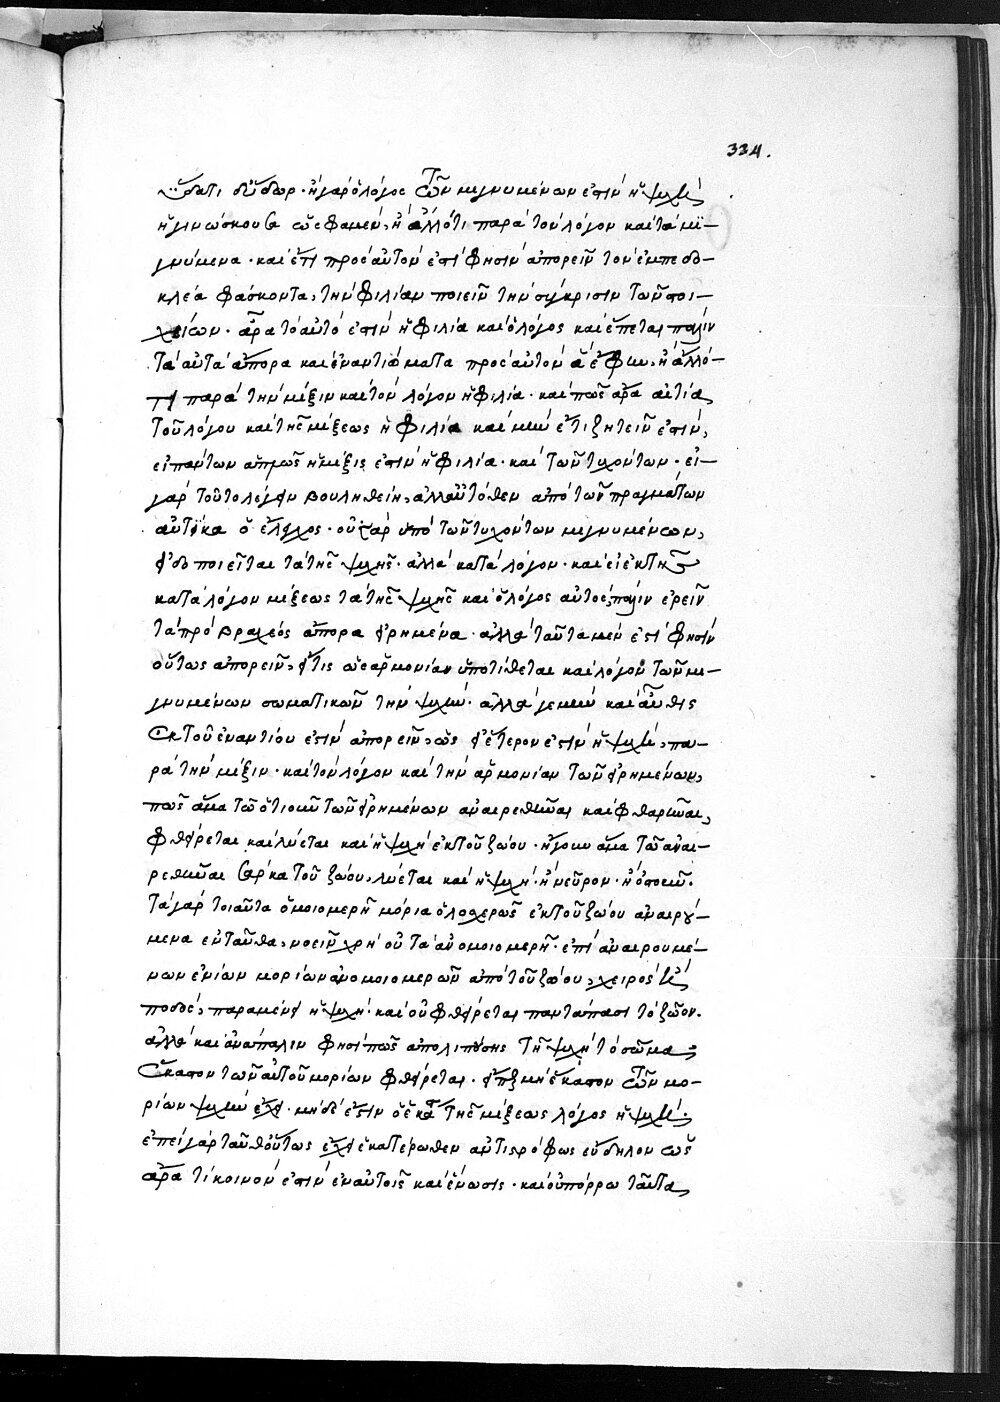 334.
ὕδατι δ' ὕδωρ· ἢ γὰρ ὁ λόγος τῶν μιγνυμένων ἐστὶν ἡ ψυχὴ
ἡ γινώσκουσα ὡς φαμέν, ἢ ἄλλό τι παρὰ τὸν λόγον καὶ τὰ μι-
γνύμενα· καὶ ἔτι πρὸς αὐτὸν ἐστί φησιν ἀπορεῖν τὸν ἐμπεδο-
κλέα φάσκοντα, τὴν φιλίαν ποιεῖν τὴν σύγκρισιν τῶν στοι-
χείων· ἆρα τὸ αὐτό ἐστιν ἡ φιλία καὶ ὁ λόγος καὶ ἕπεται πάλιν
τὰ αὐτὰ ἄπορα καὶ ἐναντιώματα πρὸς αὐτὸν ἃ ἔφην, ἢ ἄλλό
τι παρὰ τὴν μίξιν καὶ τὸν λόγον ἡ φιλία· καὶ πῶς ἄρα αἰτία
τοῦ λόγου καὶ τῆς μίξεως ἡ φιλία καὶ μὴν ἔτι ζητεῖν ἐστιν,
εἰ πάντων ἁπλῶς ἡ μίξις ἐστὶν ἡ φιλία· καὶ τῶν τυχόντων· εἰ
γὰρ τοῦτο λέγειν βουληθείη, ἀλλ' αὐτόθεν ἀπὸ τῶν πραγμάτων
αὐτίκα ὁ ἔλεγχος· οὐ γὰρ ὑπὸ τῶν τυχόντων μιγνυμένων,
εἰδοποιεῖται τὰ τῆς ψυχῆς· ἀλλὰ κατὰ λόγον· καὶ εἰ ἐκ τῆς
κατὰ λόγον μίξεως τὰ τῆς ψυχῆς καὶ ὁ λόγος αὐτός, πάλιν ἐρεῖν
τὰ πρὸ βραχέος ἄπορα εἰρημένα· ἀλλὰ ταῦτα μὲν ἐστί φησιν
οὕτως ἀπορεῖν, εἴ τις ὡς ἁρμονίαν ὑποτίθεται καὶ λόγον τῶν μι-
γνυμένων σωματικῶν τὴν ψυχήν· ἀλλά γε μὴν καὶ αὖθις
ἐκ τοῦ ἐναντίου ἐστὶν ἀπορεῖν, ὡς εἰ ἕτερόν ἐστιν ἡ ψυχὴ, πα-
ρὰ τὴν μίξιν· καὶ τὸν λόγον καὶ τὴν ἁρμονίαν τῶν εἰρημένων,
πῶς ἅμα τῷ ὁτιοῦν τῶν εἰρημένων ἀναιρεθῆναι καὶ φθαρῆναι,
φθείρεται καὶ λύεται καὶ ἡ ψυχὴ ἐκ τοῦ ζώου· ἤγουν ἅμα τῷ ἀναι-
ρεθῆναι σάρκα τοῦ ζώου, λύεται καὶ ἡ ψυχή· ἢ νεῦρον· ἢ ὀστοῦν·
τὰ γὰρ τοιαῦτα ὁμοιομερῆ μόρια ὁλοσχερῶς ἐκ τοῦ ζώου ἀναιρού-
μενα ἐνταῦθα, νοεῖν χρὴ οὐ τὰ ἀνομοιομερῆ· ἐπεὶ ἀναιρουμέ-
νων ἐνίων μορίων ἀνομοιομερῶν ἀπὸ τοῦ ζώου, χειρὸς ἢ
ποδὸς, παραμένει ἡ ψυχή· καὶ οὐ φθείρεται παντάπασι τὸ ζῶον·
ἀλλὰ καὶ ἀνάπαλιν φησὶ πῶς ἀπολιπούσης τῆς ψυχῆς τὸ σῶμα,
ἕκαστον τῶν αὐτοῦ μορίων φθείρεται· εἴπερ μὴ ἕκαστον τῶν μο-
ρίων ψυχὴν ἔχει· μηδέ ἐστιν ὁ ἑκάστου τῆς μίξεως λόγος ἡ ψυχή·
ἐπεὶ γὰρ ταῦθ' οὕτως ἔχει ἑκατέρωθεν ἀντιστρόφως εὔδηλον ὡς
ἄρα τι κοινόν ἐστιν ἐν αὐτοῖς καὶ ἕνωσις· καὶ οὐ πόρρω ταῦτα